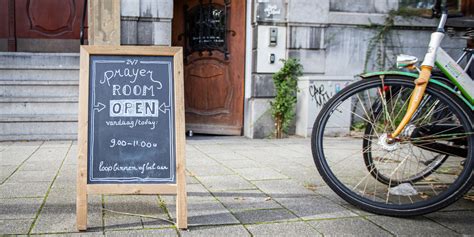 24/7
prayer
ROOM
OPEN
vandaag/today:
9.00 - 11.00u
loop binnen of bel aan